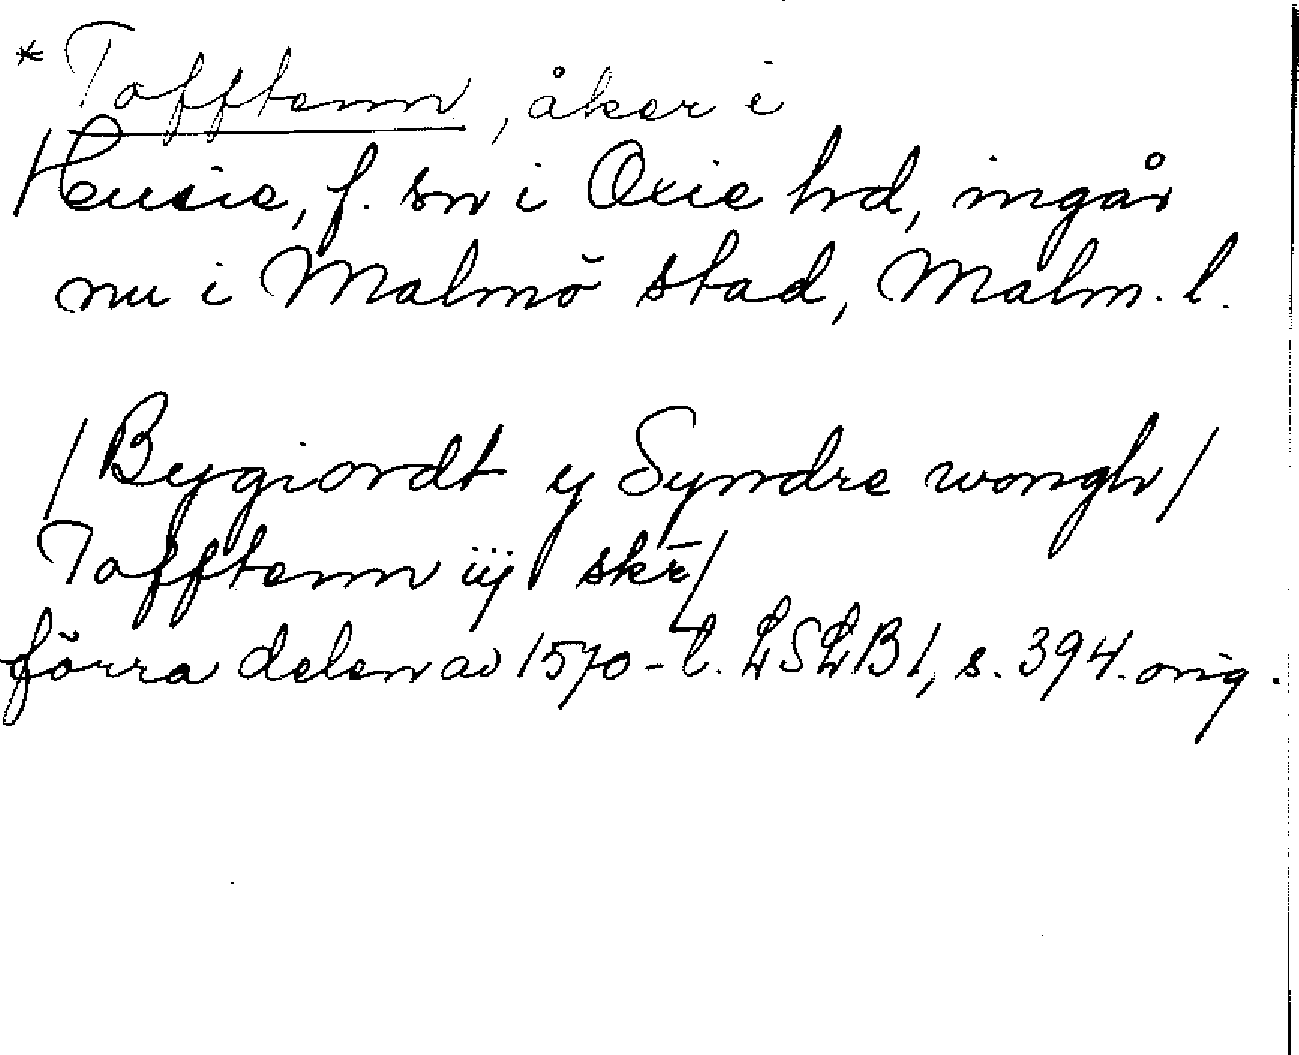 * Tofftenn, åker i
Husie, f. sn i Oxie hd, ingår
nu i Malmö stad, Malm. l.
/Bygiordt y Syndre wongh/
Tofftenn iij skē/
förra delen av 1570-t. LSLB1, s. 394. orig.